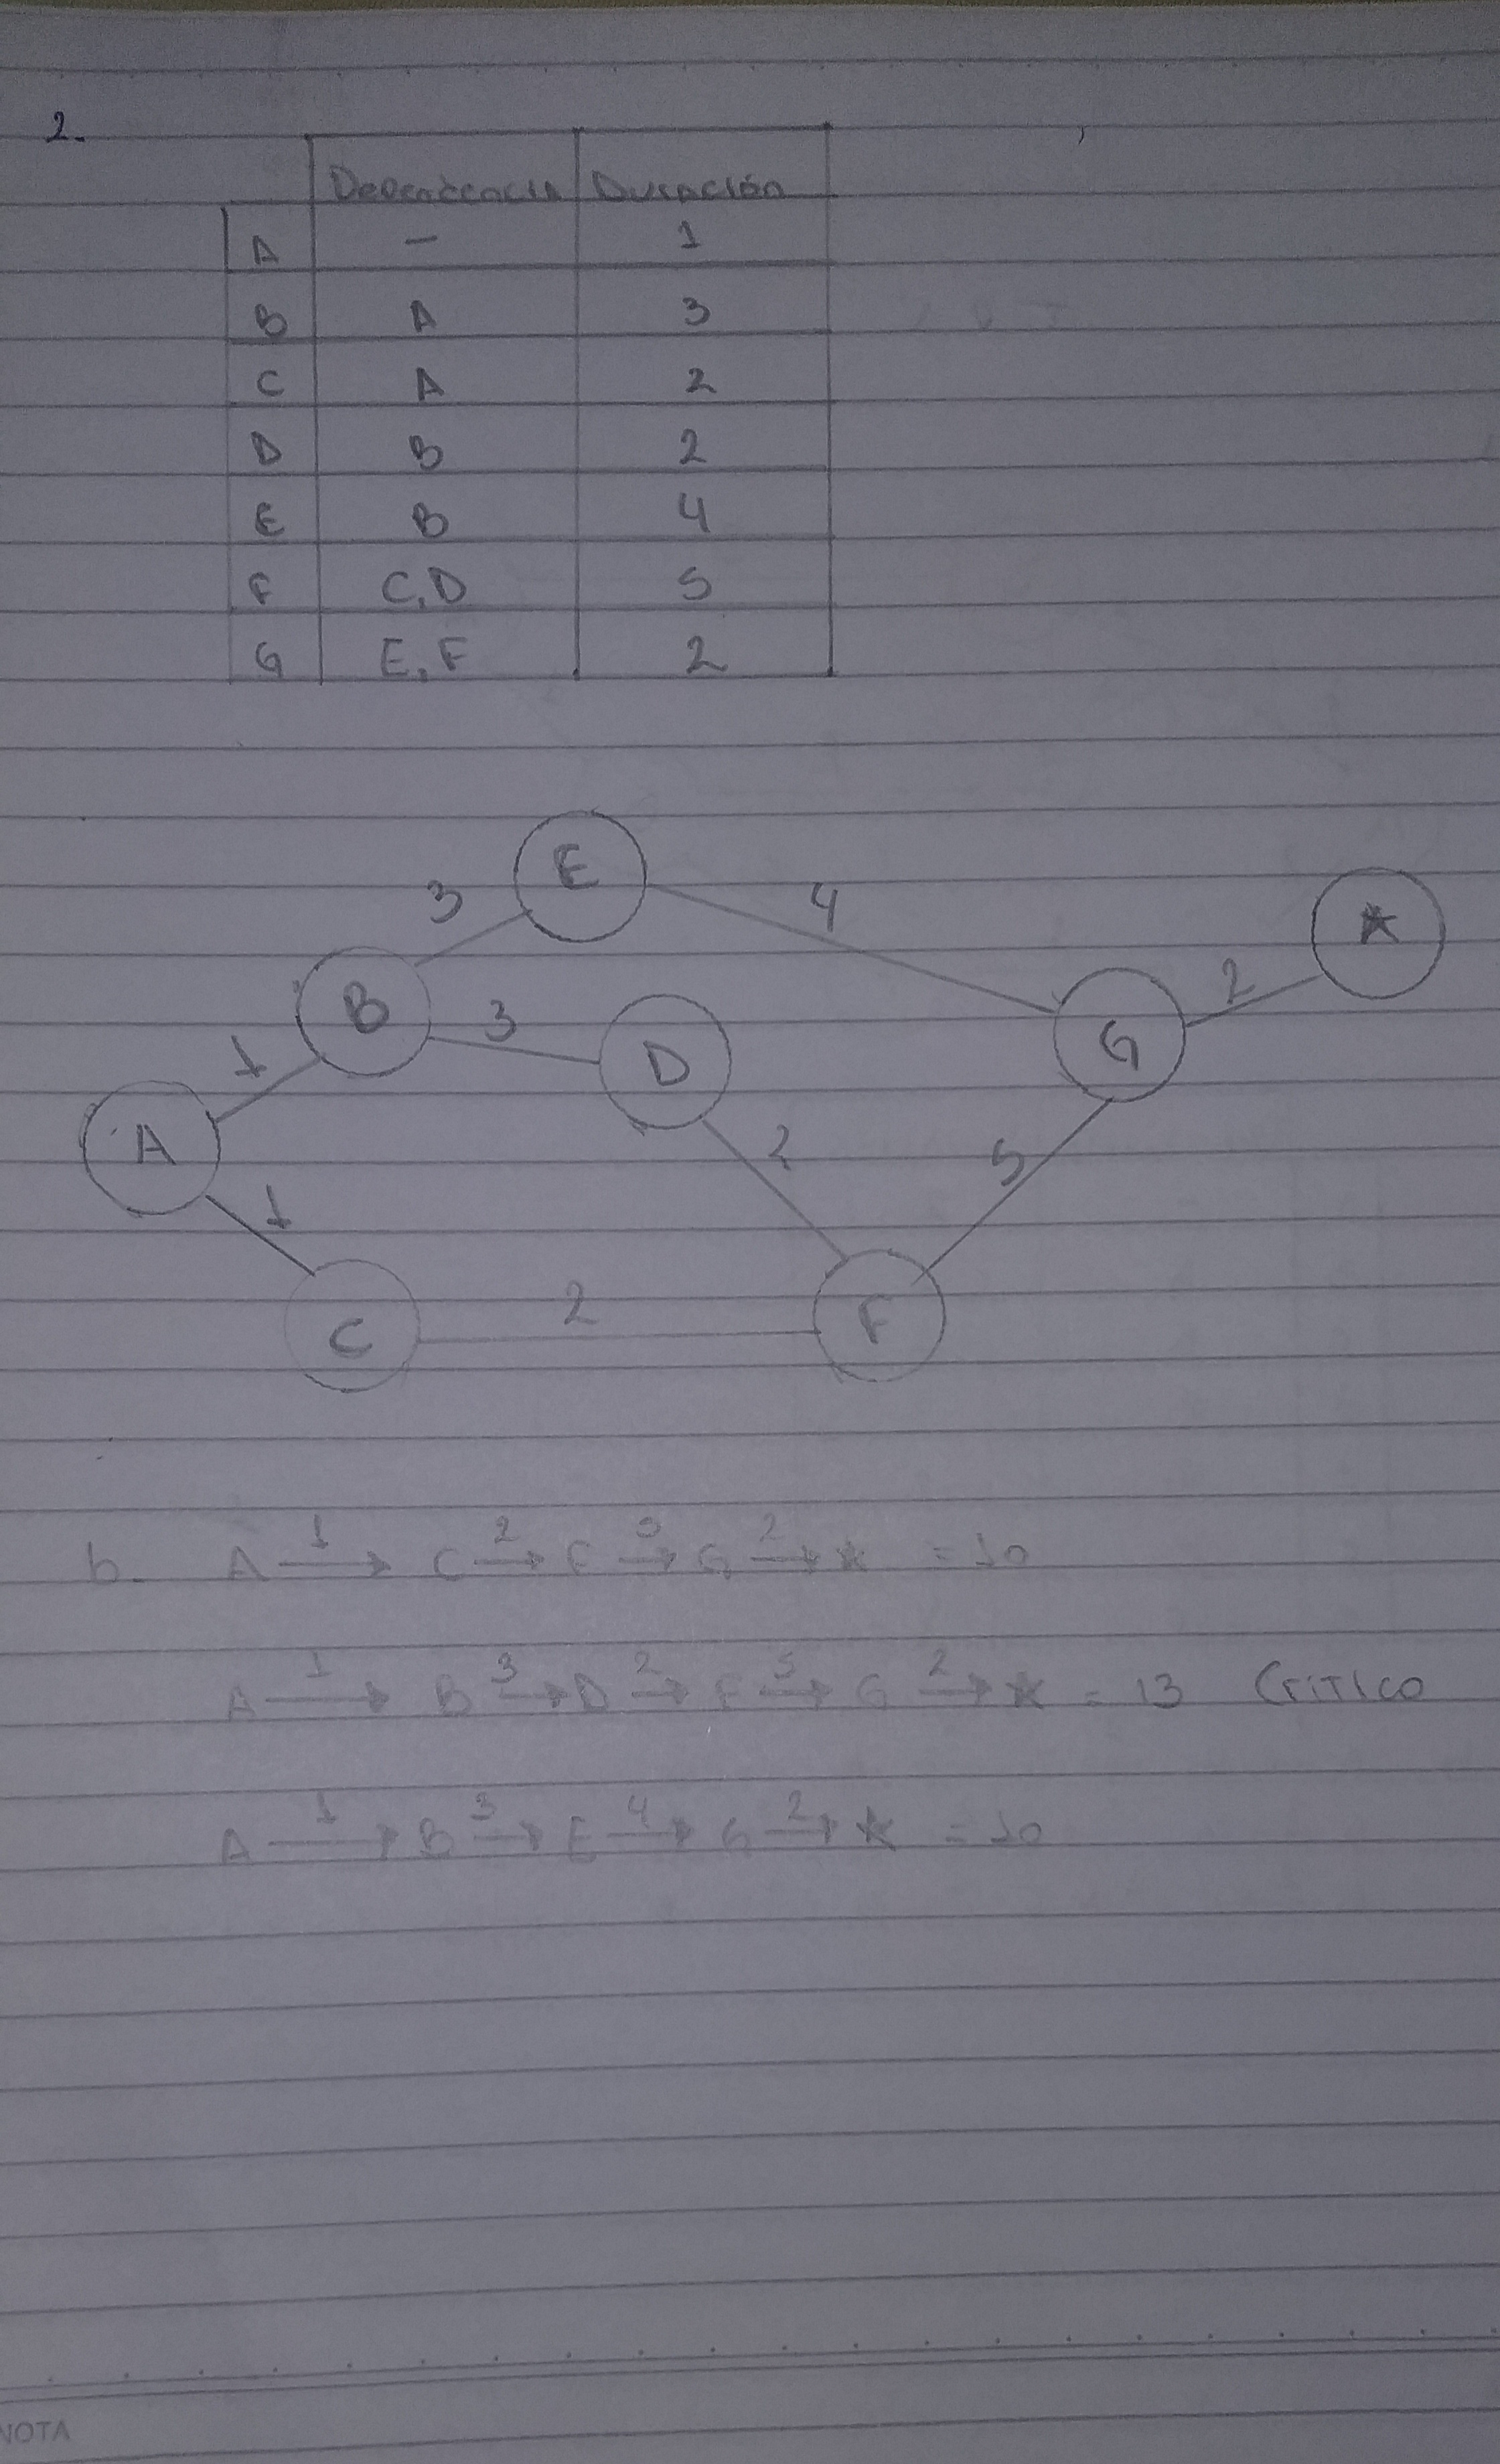 2.
Dependencia Duración
A — 1
B A 3
C A 2
D B 2
E B 4
F C,D 5
G E,F 2
E
3 4
B 3 D G 2 *
1
A 2 5
1
C 2 F
b. A 1→ C 2→ F 5→ G 2→ * = 10
A 1→ B 3→ D 2→ F 5→ G 2→ * = 13 Critico
A 1→ B 3→ E 4→ G 2→ * = 10
NOTA